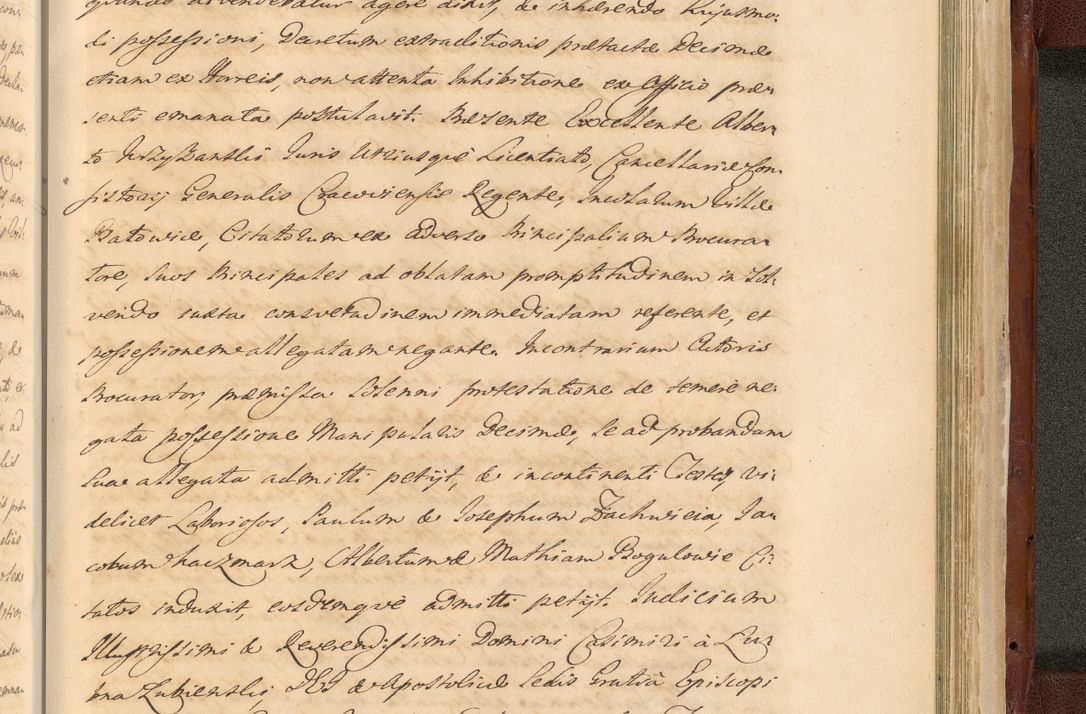 di possessioni, Decretum extraditionis prætactæ Decimæ
etiam ex Horreis, non attenta Inhibitione ex Officio præ-
senti emanata postulavit. Præsente Excellente Alber-
to Juris Utriusque Licentiato, Cancellariæ Con-
sistorij Generalis Cracoviensis Regente, Incolarum Villæ
Ratowice, Citatorum ex adverso Principalium Procura-
tore, suos Principales ad oblatam promptitudinem in sol-
vendo iuxta consvetudinem immediatam referente, et
possessionem allegatam negante. Incontrarium Actoris
Procurator, præmissa Solenni protestatione de temere ne-
gata possessione Manipularis Decimæ, se ad probandam
sua allegata admitti petijt, & incontinenti Testes, vi-
delicet Laboriosos, Paulum & Josephum Ja-
cobum Kaczmarz, Albertum & Mathiam Ci-
tatos induxit, eosdemque admitti petijt. Iudicium
Illustrissimi & Reverendissimi Domini Casimiri à Łu-
bna Łubienski, DEI & Apostolicæ Sedis Gratiâ Episcopi